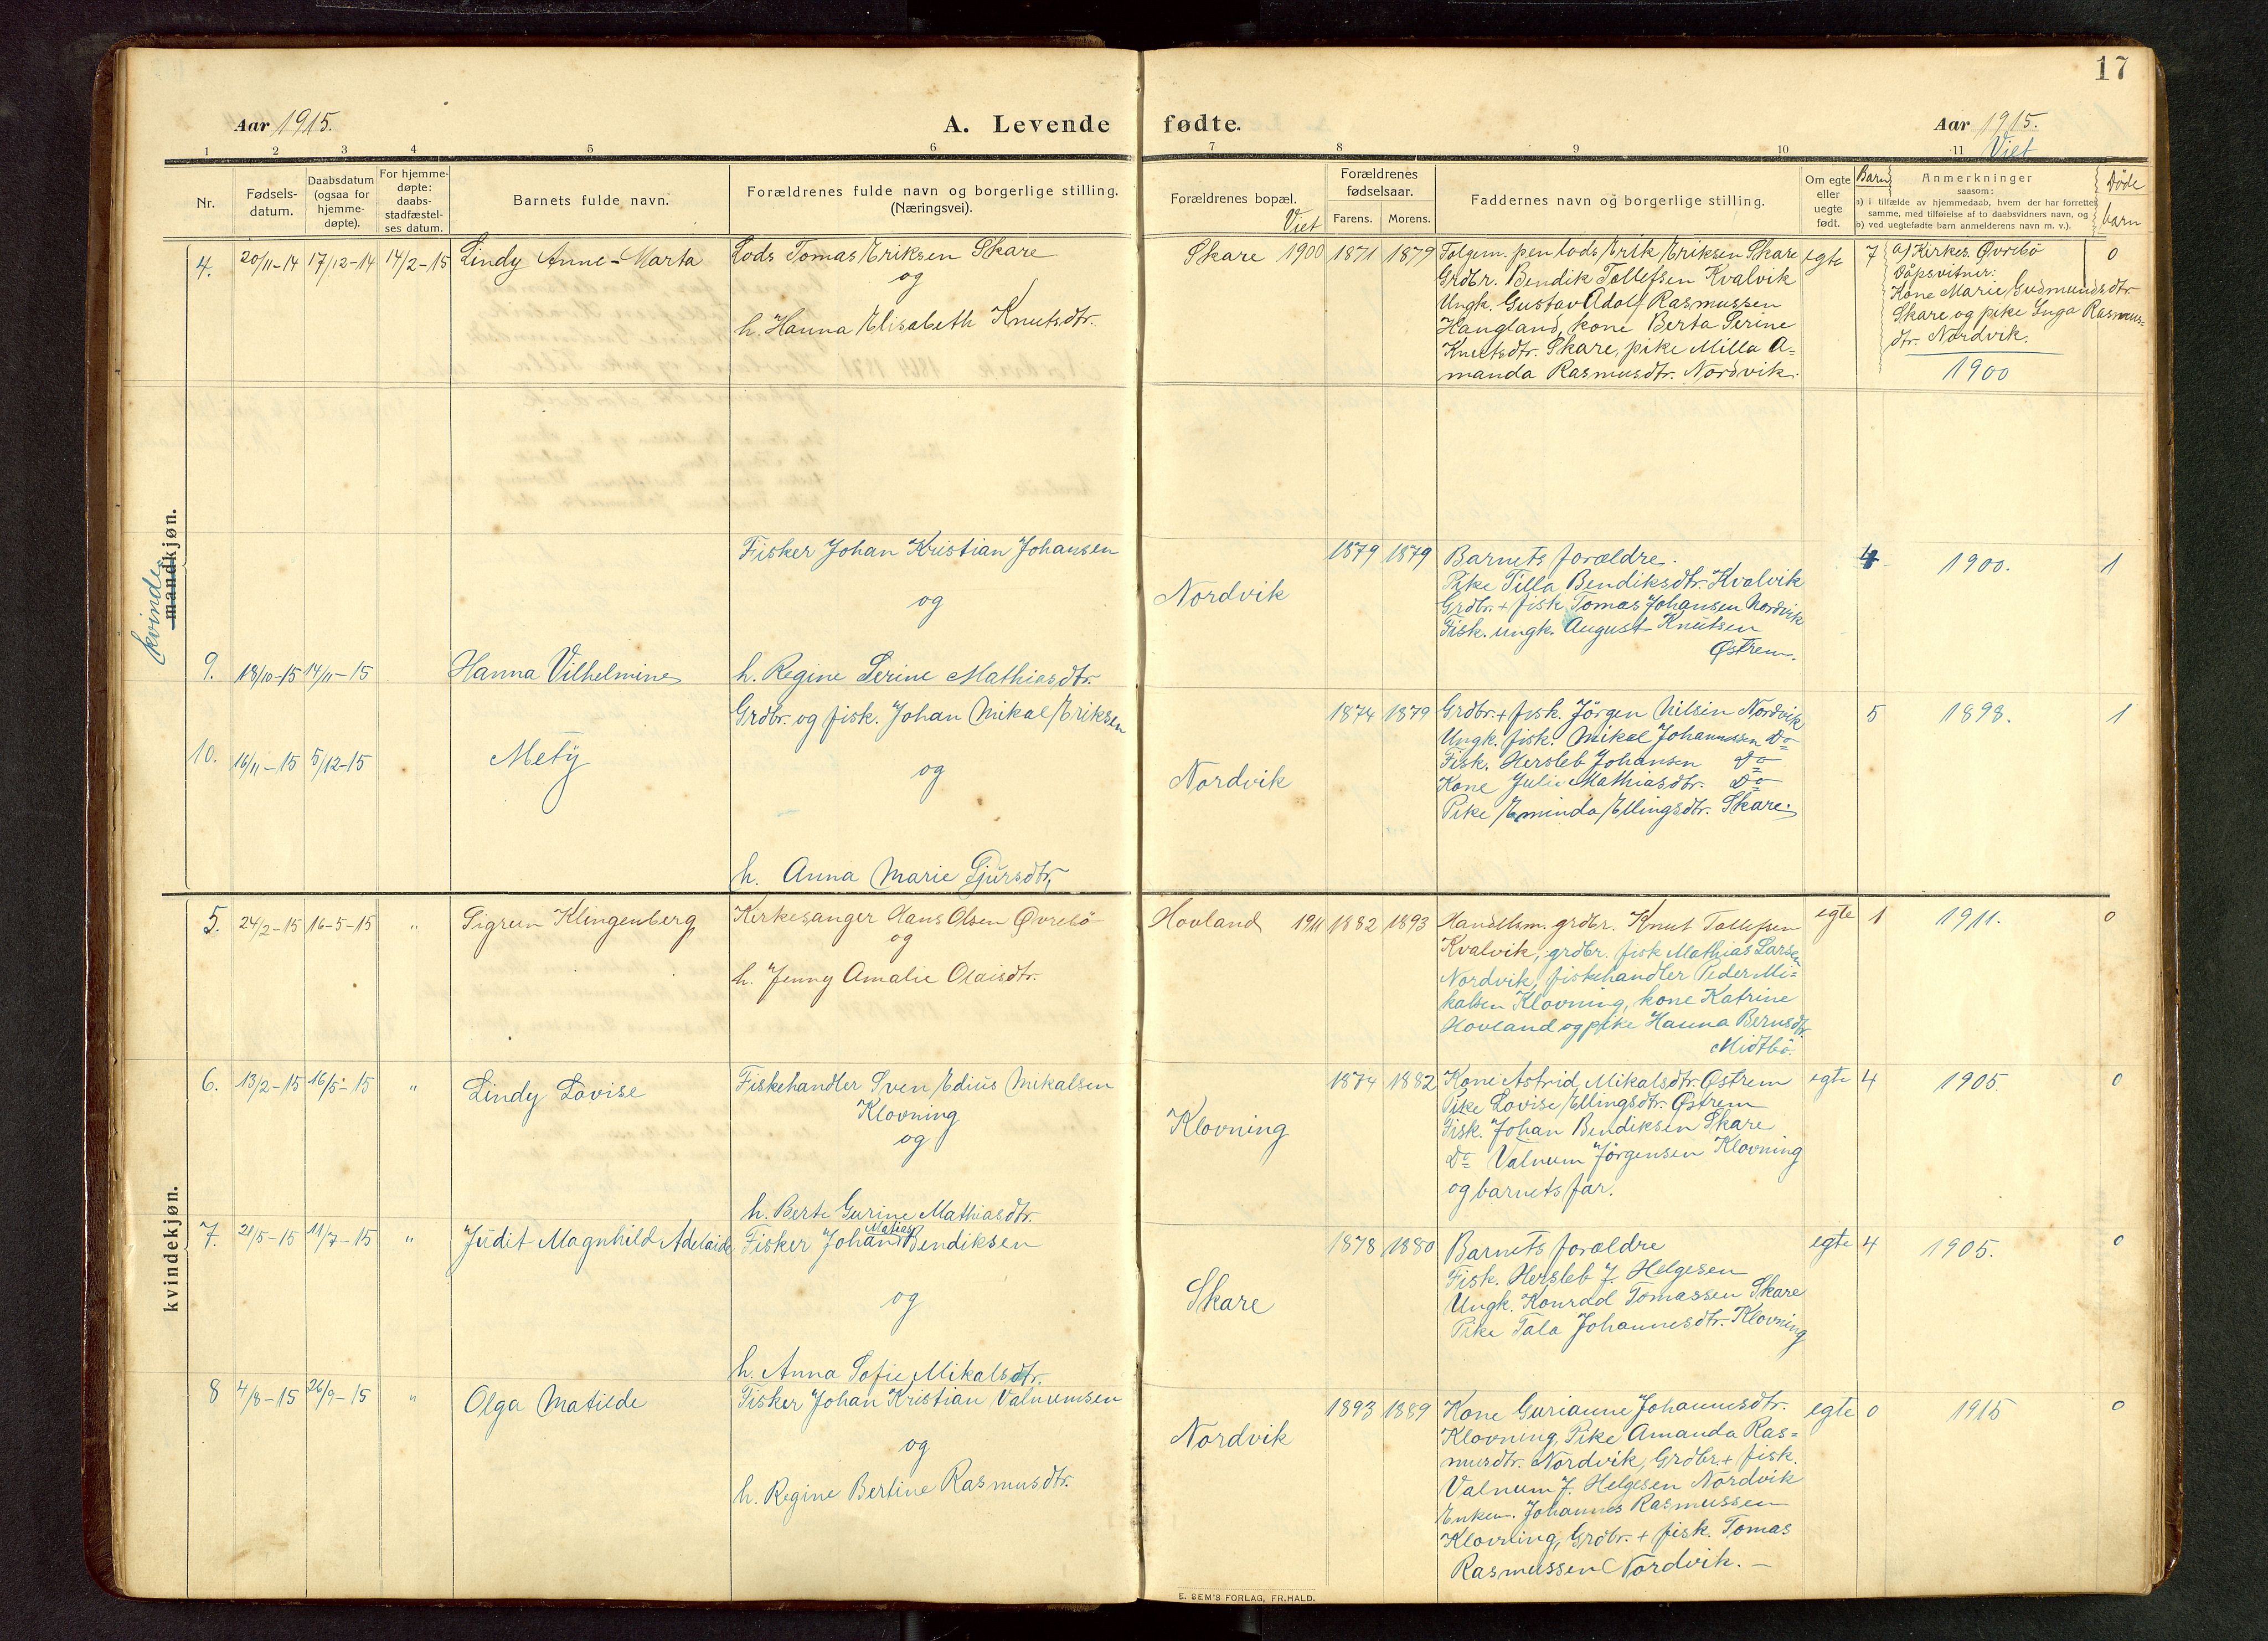 17
Aar 1915.
A. Levende fødte.
Aar 1915.
1 2 3 4 5 6 7 8 9 10 11 Viet
Nr.
Fødsels-
datum.
Daabsdatum
(ogsaa for
hjemme-
døpte).
For hjemme-
døpte:
daabs-
stadfæstel-
ses datum.
Barnets fulde navn.
Forældrenes fulde navn og borgerlige stilling.
(Næringsvei).
Forældrenes bopæl.
Viet
Forældrenes
fødselsaar.
Farens. Morens.
Faddernes navn og borgerlige stilling.
Om egte
eller
uegte
født.
Barn
Anmerkninger
saasom:
a) i tilfælde av hjemmedaab, hvem der har forrettet
samme, med tilføielse af to daabsvidners navn, og
b) ved uegtefødte barn anmelderens navn m. v.).
Døde
barn
kvinde
mandkjøn.
4. 20/11-14 17/12-14 14/2-15 Lindy Anne-Marta
Lods Tomas Eriksen Skare
og
h. Hanna Elisabeth Knutsdtr.
Skare 1900 1871 1879
Folgem. pen lods Erik Eriksen Skare
Grdbr. Bendik Tollefsen Kvalvik
Ungk. Gustav Adolf Rasmussen
Haugland, kone Berta Serine
Knutsdtr. Skare, pike Milla A=
manda Rasmusdtr. Nordvik.
egte 7
a) Kirkes. Øvrebö
Dåpsvitner:
Kone Marie Gudmundsdtr
Skare og pike Inga Rasmus=
dtr. Nordvik.
1900
0
9. 18/10-15 14/11-15 Hanna Vilhelmine
Fisker Johan Kristian Johansen
og
h. Regine Serine Mathiasdtr.
Nordvik
1879 1879
Barnets forældre.
Pike Tilla Bendiksdtr. Kvalvik
Grdbr. + fisk Tomas Johansen Nordvik
Fisk. ungk. August Knutsen
Østrem.
4 1900. 1
10. 16/11-15 5/12-15 Mety
Grdbr. og fisk. Johan Mikal Eriksen
og
h. Anna Marie Sjursdtr,
Nordvik
1874 1879
Grdbr. + fisk. Jörgen Nilsen Nordvik
Ungk. fisk. Mikal Johannessen Do
Fisk. Hersleb Johansen Do
Kone Julie Mathiasdtr. Do
Pike Eminda Ellingsdtr. Skare.
5 1898. 1
kvindekjøn.
5. 24/2-15 16-5-15 " Sigrun Klingenberg
Kirkesanger Hans Olsen Øvrebö
og
h. Jenny Amalie Olaisdtr.
Hovland 1911 1882 1893
Handelsm. grdbr. Knut Tollefsen
Kvalvik, grdbr. fisk Mathias Larsen
Nordvik, fiskehandler Peder Mi=
kalsen Klovning, kone Katrine
Hovland og pike Hanna Berntsdtr.
Midtbö.
egte 1 1911. 0
6. 13/2-15 16/5-15 " Lindy Lovise
Fiskehandler Sven Edius Mikalsen
Klovning
og
h. Berte Gurine Mathiasdtr.
Klovning
1874 1882
Kone Astrid Mikalsdtr. Østrem
Pike Lovise Ellingsdtr. Østrem
Fisk. Johan Bendiksen Skare
Do Valnum Jörgensen Klovning
og barnets far.
egte 4 1905. 0
7. 21/5-15 11/7-15 " Judit Magnhild Adelaide
Matias
Fisker Johan Bendiksen
og
h. Anna Sofie Mikalsdtr.
Skare
1878 1880
Barnets forældre
Fisk. Hersleb J. Helgesen
Ungk. Konrad Tomassen Skare
Pike Tala Johannesdtr. Klovning
egte 4 1905. 0
8 4/8-15 26/9-15 " Olga Matilde
Fisker Johan Kristian Valnumsen
og
h. Regine Bertine Rasmusdtr.
Nordvik
1893 1889
Kone Gurianne Johannesdtr.
Klovning, Pike Amanda Ras=
musdtr. Nordvik, Grdbr. + fisk.
Valnum J. Helgesen Nordvik
Enkem. Johannes Rasmussen
Klovning, Grdbr. + fisk. Tomas
Rasmussen Nordvik. —
egte 0 1915 0
E. SEM'S FORLAG, FR.HALD.